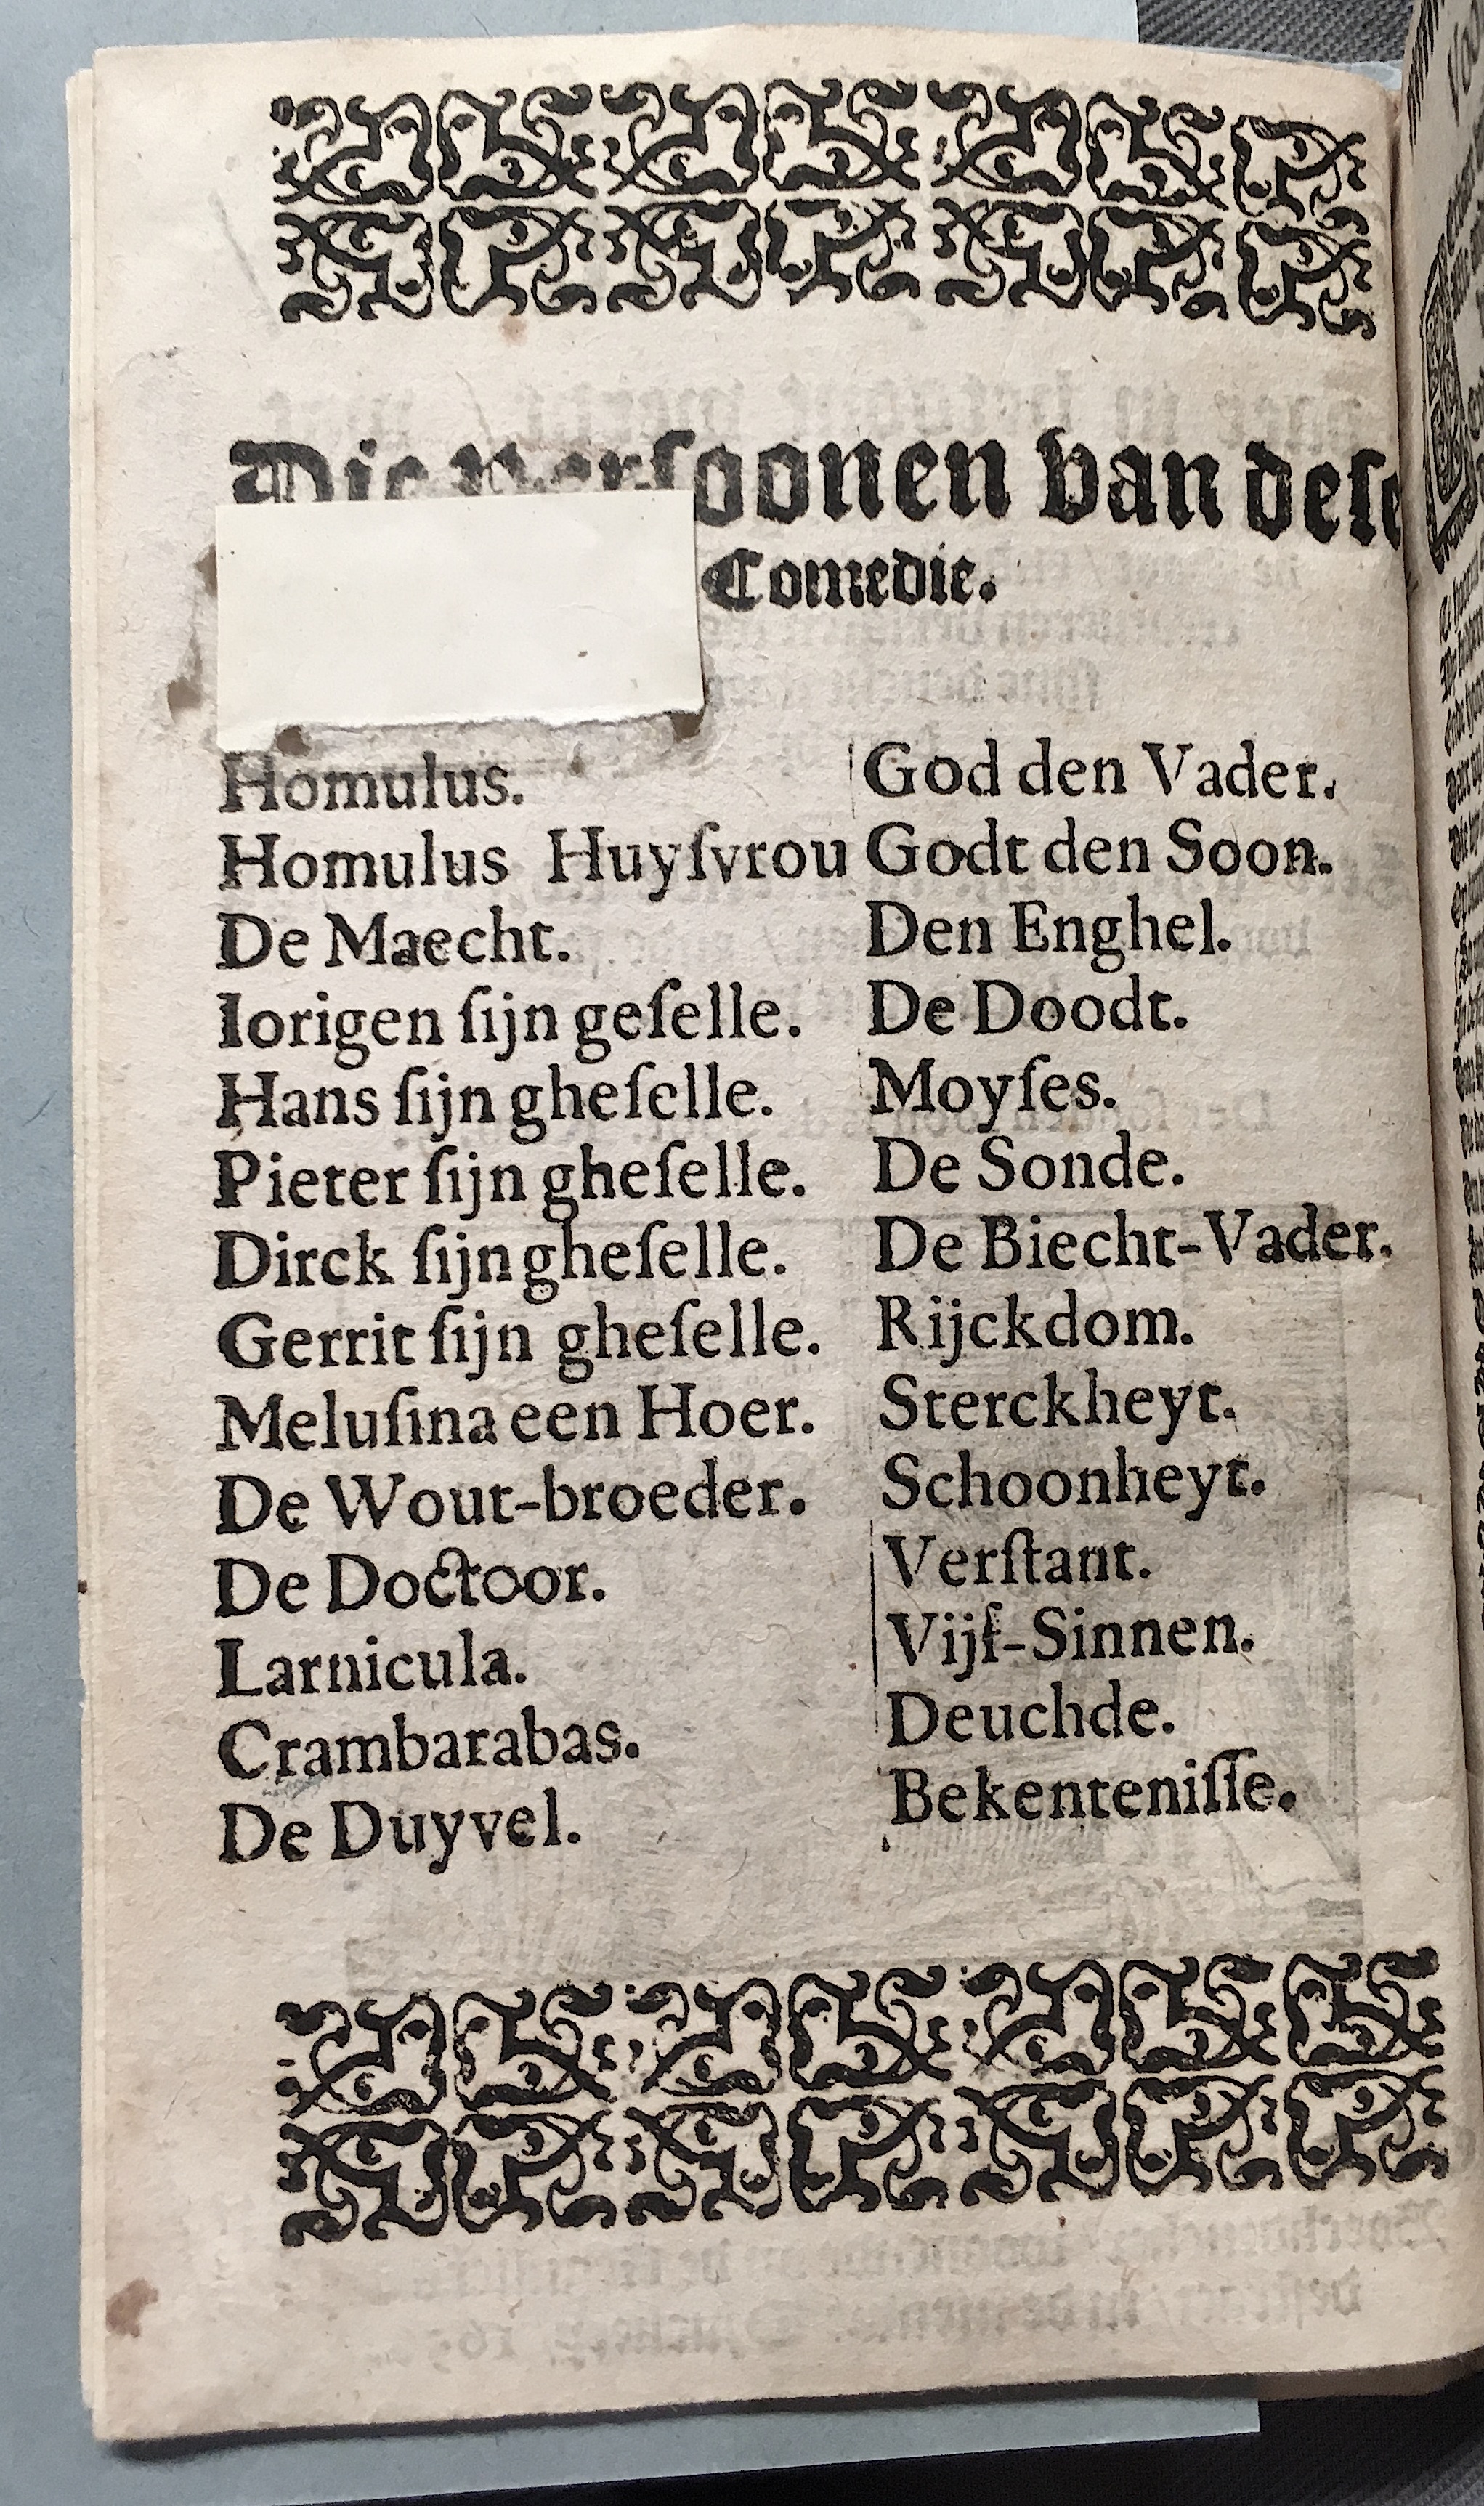 Die Persoonen van dese
Comedie.
Homulus.
Homulus Huyſvrou
De Maecht.
Iorigen ſijn geſelle.
Hans ſijn gheſelle.
Pieter ſijn gheſelle.
Dirck ſijn gheſelle.
Gerrit ſijn gheſelle.
Meluſina een Hoer.
De Wout-broeder.
De Doctoor.
Larnicula.
Crambarabas.
De Duyvel.
God den Vader.
Godt den Soon.
Den Enghel.
De Doodt.
Moyſes.
De Sonde.
De Biecht-Vader.
Rijckdom.
Sterckheyt.
Schoonheyt.
Verſtant.
Vijf-Sinnen.
Deuchde.
Bekenteniſſe.